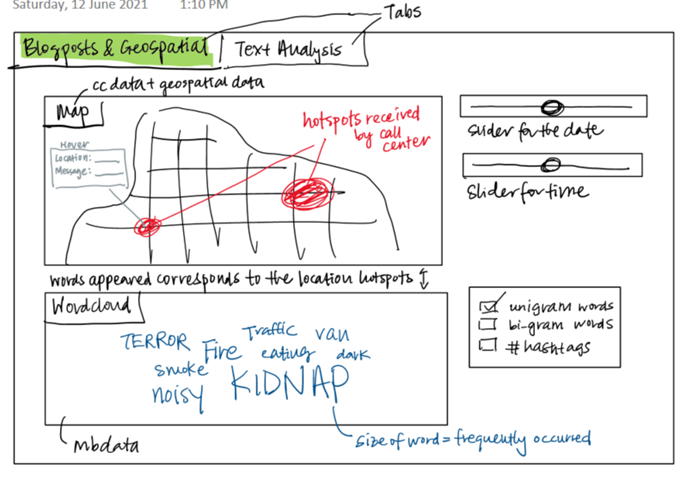 Saturday, 12 June 2021 1:10 PM
Tabs
Blogposts & Geospatial
Text Analysis
cc data + geospatial data
Map
hotspots received
by call
center
Hover
Location:
Message:
Slider for the date
Slider for time
words appeared corresponds to the location hotspots
Wordcloud
unigram words
bi-gram words
# hashtags
TERROR Traffic van
Fire eating dark
smoke
noisy KIDNAP
mbdata
size of word = frequently occurred